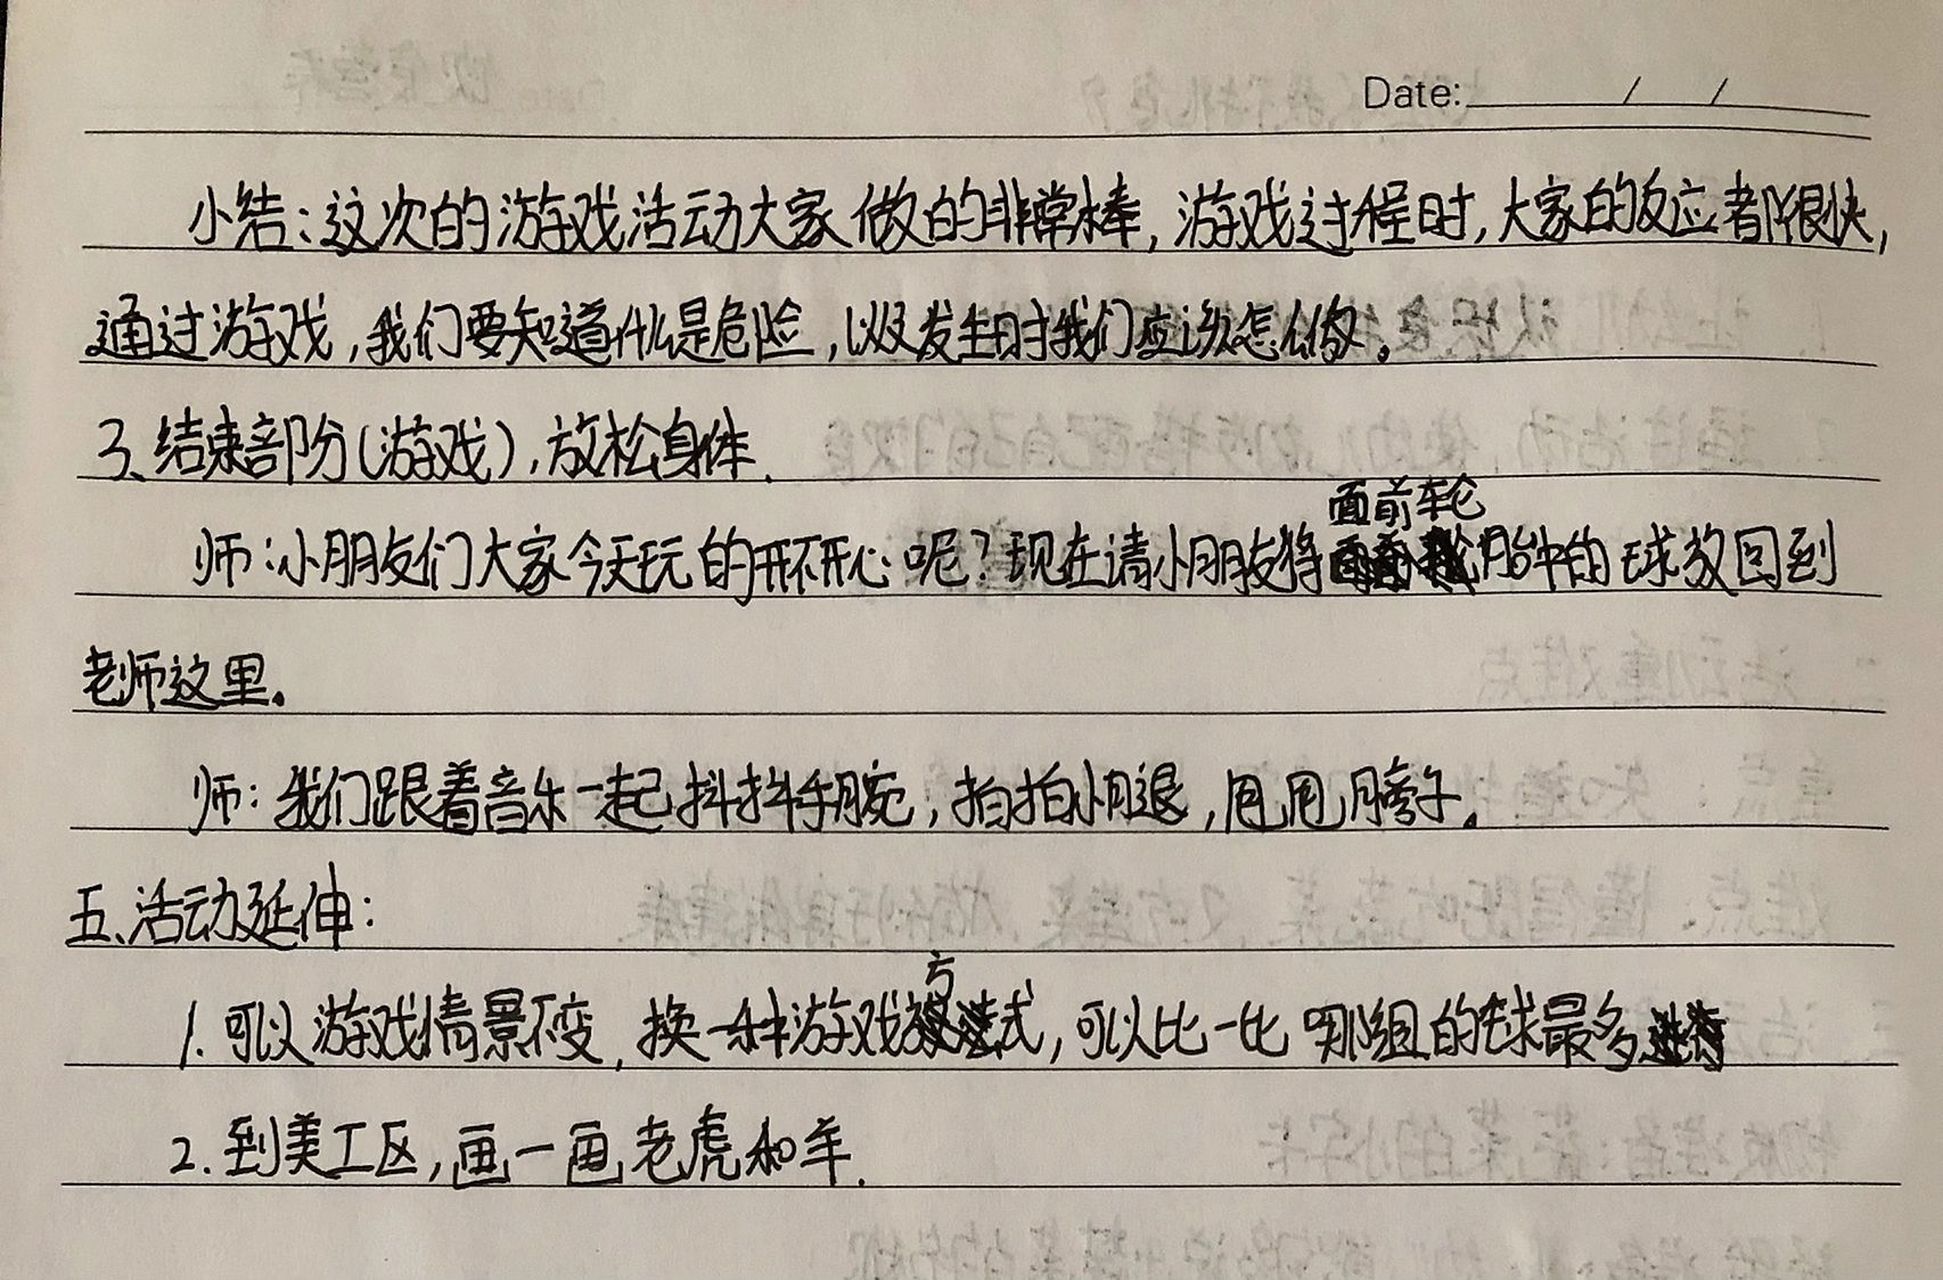 Date: / /
小结:这次的游戏活动大家做的非常棒,游戏过程时,大家的反应都很快,
通过游戏,我们要知道什么是危险,以及发生时我们应该怎么做。
3、结束部分(游戏),放松身体.
师:小朋友们大家今天玩的开不开心呢?现在请小朋友将面前轮胎中的球放回到
老师这里。
师:我们跟着音乐一起抖抖手腕,拍拍小腿,甩甩膀子。
五、活动延伸:
1.可以游戏情景不变,换一种游戏方式,可以比一比哪组的球最多
2.到美工区,画一画老虎和羊.